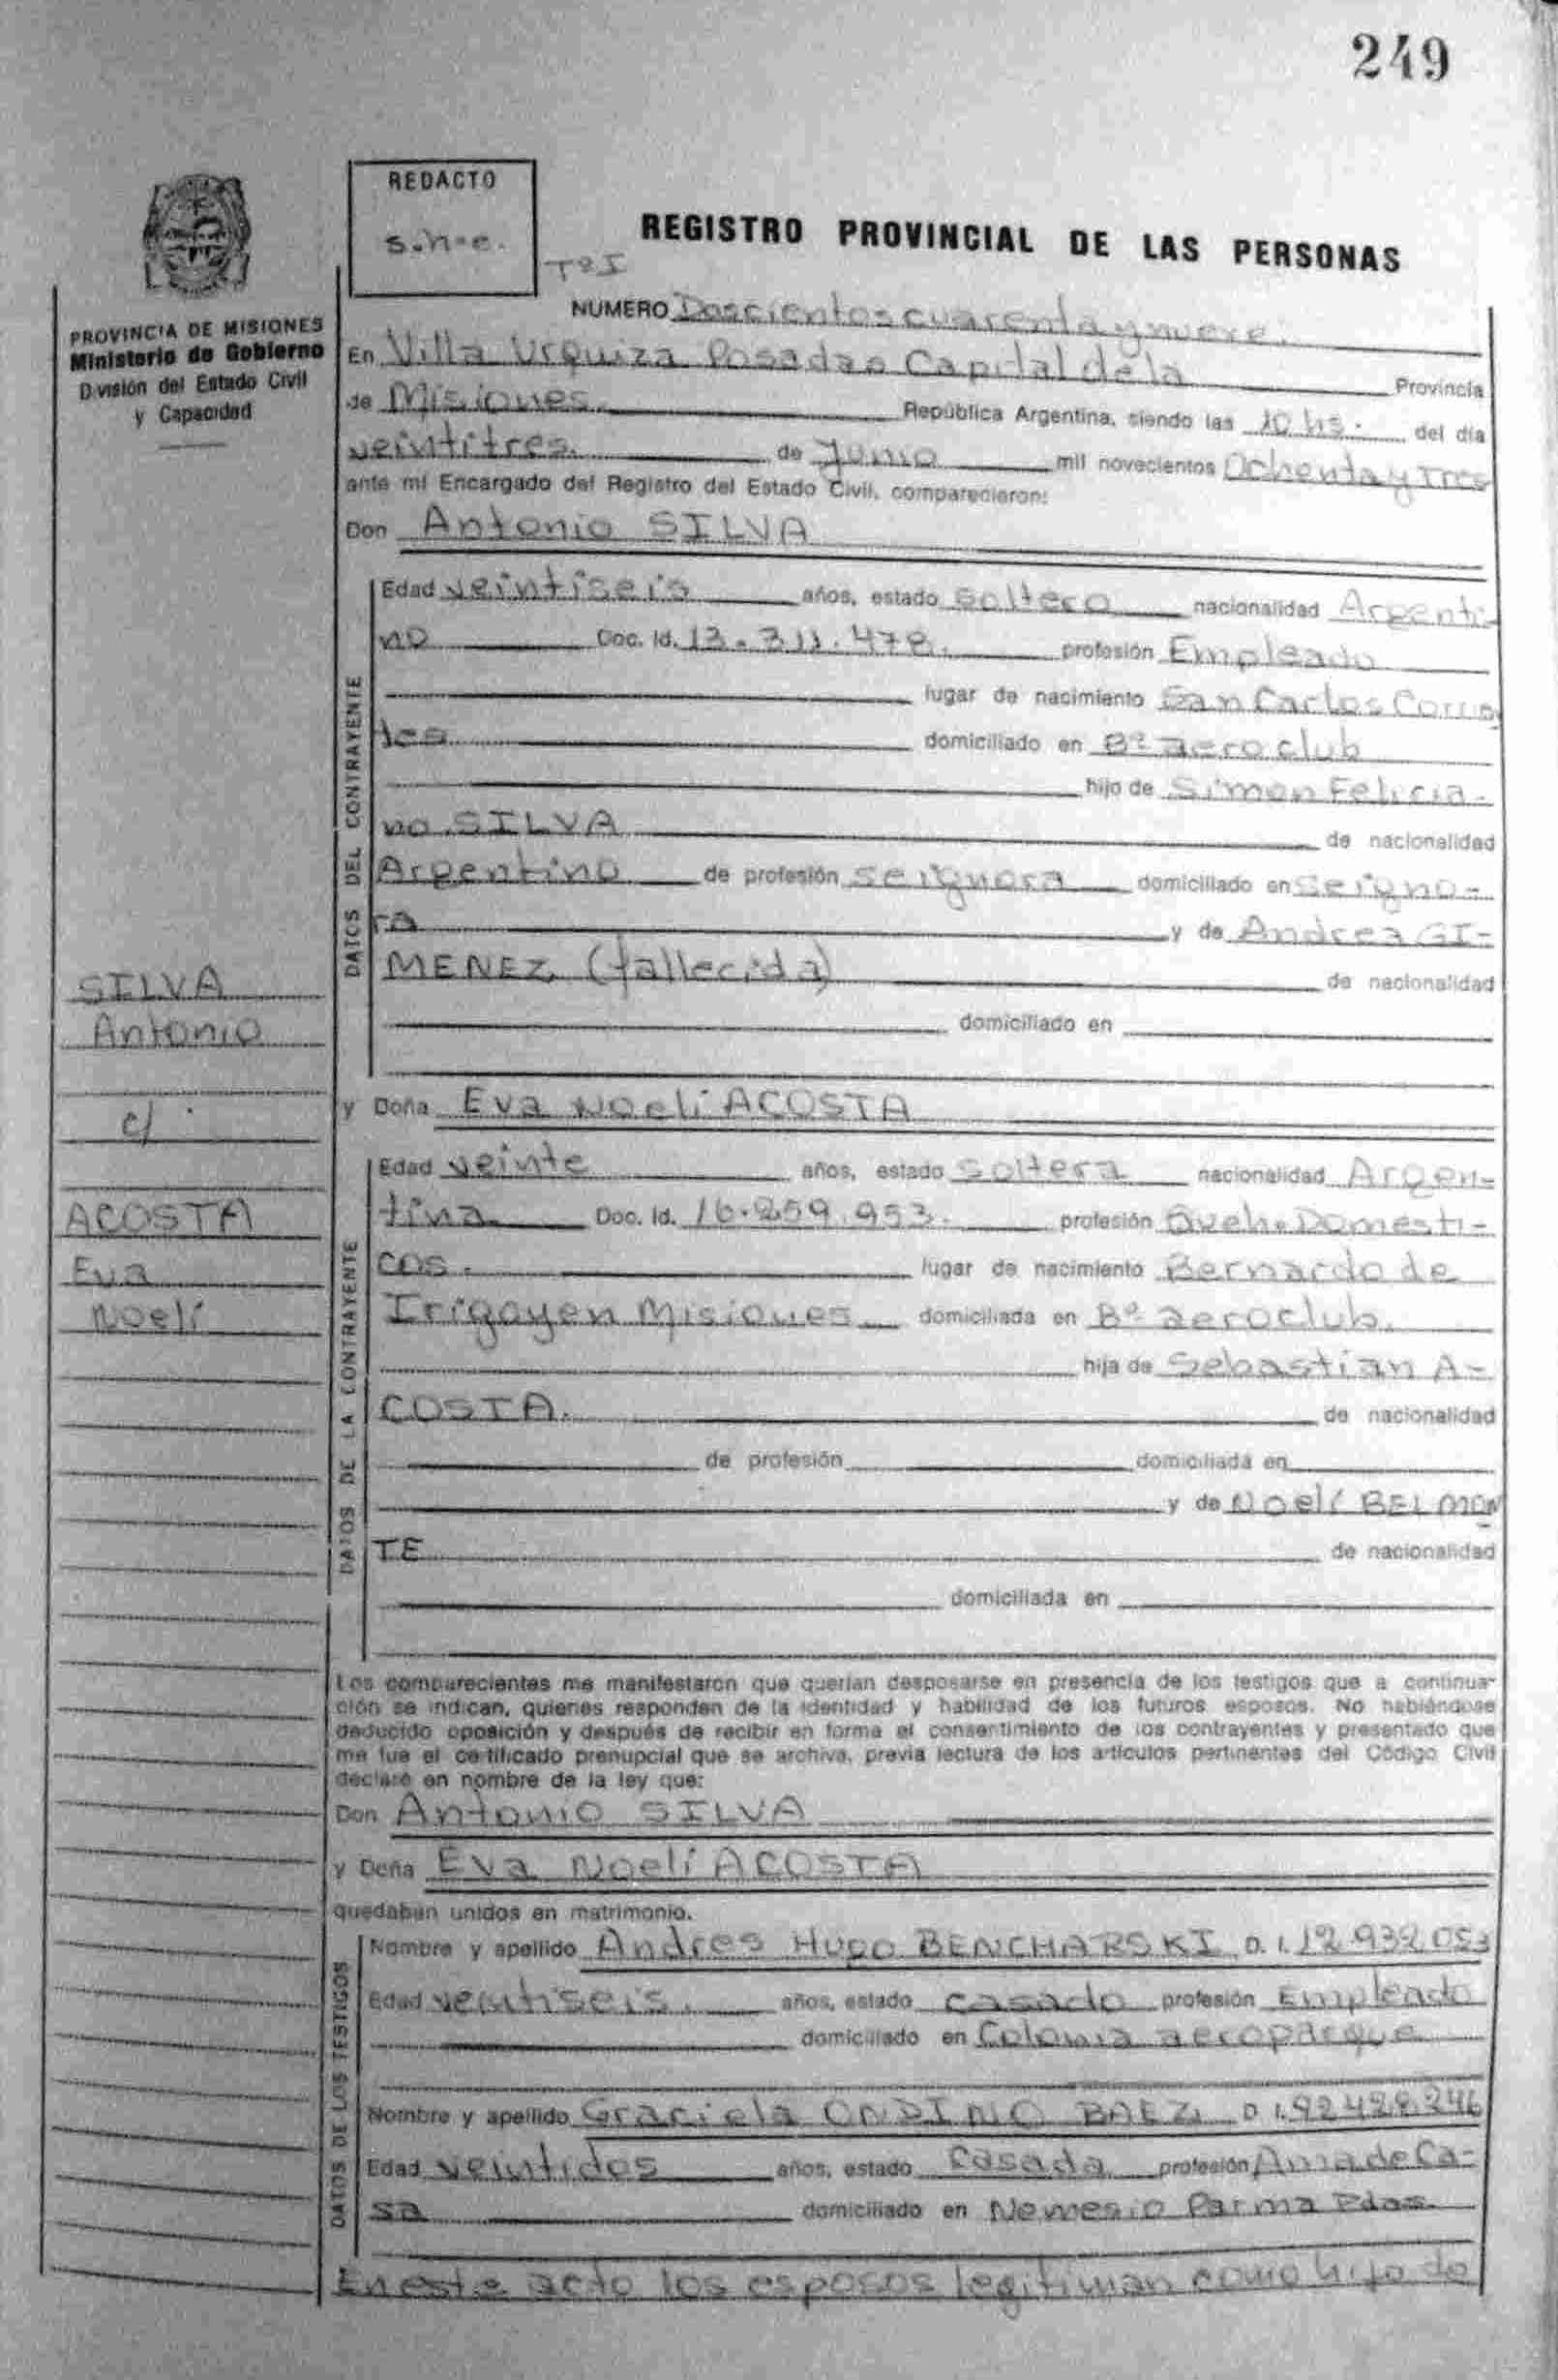 249
REDACTO
s.h.e.
TºI
REGISTRO PROVINCIAL DE LAS PERSONAS
PROVINCIA DE MISIONES
Ministerio de Gobierno
División del Estado Civil
y Capacidad
NUMERO Doscientos cuarenta y nueve.
En Villa Urquiza Posadas Capital de la Provincia
de Misiones. República Argentina, siendo las 10 hs. del día
veintitres. de Junio mil novecientos Ochenta y Tres
ante mí Encargado del Registro del Estado Civil, comparecieron:
Don Antonio SILVA
DATOS DEL CONTRAYENTE
Edad veintiseis años, estado soltero nacionalidad Argenti-
no Doc. Id. 13.311.478. profesión Empleado
lugar de nacimiento San Carlos Corrien
tes domiciliado en Bº aero club
hijo de Simon Felicia-
no SILVA de nacionalidad
Argentino de profesión se ignora domiciliado en se igno-
ra y de Andrea GI-
MENEZ (fallecida) de nacionalidad
domiciliado en
SILVA
Antonio
c/
ACOSTA
Eva
Noelí
y Doña Eva Noelí ACOSTA
DATOS DE LA CONTRAYENTE
Edad veinte años, estado soltera nacionalidad Argen-
tina Doc. Id. 16.259.953. profesión Queh. Domesti-
cos. lugar de nacimiento Bernardo de
Irigoyen Misiones domiciliada en Bº aeroclub.
hija de Sebastian A-
COSTA. de nacionalidad
de profesión domiciliada en
y de Noelí BELMON
TE de nacionalidad
domiciliada en
Los comparecientes me manifestaron que querían desposarse en presencia de los testigos que a continua-
ción se indican, quienes responden de la identidad y habilidad de los futuros esposos. No habiéndose
deducido oposición y después de recibir en forma el consentimiento de los contrayentes y presentado que
me fue el certificado prenupcial que se archiva, previa lectura de los artículos pertinentes del Código Civil
declaré en nombre de la ley que:
Don Antonio SILVA
y Doña Eva Noelí ACOSTA
quedaban unidos en matrimonio.
DATOS DE LOS TESTIGOS
Nombre y apellido Andres Hugo BENCHARSKI D. I. 12.932.053
Edad veintiseis. años, estado casado profesión Empleado
domiciliado en Colonia aeroparque
Nombre y apellido Graciela ONDINO BAEZ D I. 92428.246
Edad veintidos años, estado casada profesión Ama de Ca-
sa domiciliado en Nemesio Parma Pdas.
En este acto los esposos legitiman como hijo de